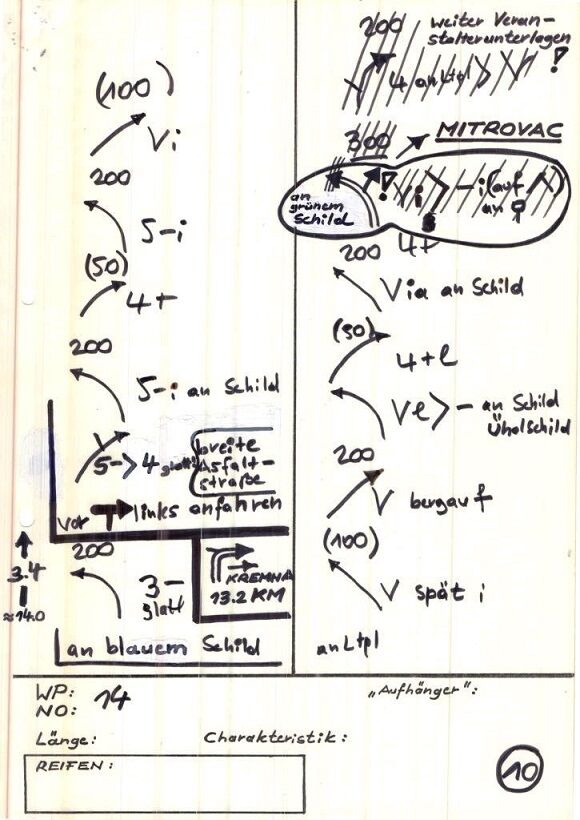 (100)
Vi
200
5-i
(50)
4+
200
5-i an Schild
5-> 4 glatt
breite
Asfalt-
straße
vor T links anfahren
200
3-
glatt
KREMNA
13.2 KM
3.4
≈14.0
an blauem Schild
200
weiter Veran-
stalterunterlagen
!
4 an Ltpl >
300
MITROVAC
an
grünem
Schild
! i > - i (auf
an
200
4+
Via an Schild
(50)
4+e
Ve> - an Schild
Überholschild
200
V bergauf
(100)
V spät i
an Ltpl
WP: 14
NO:
"Aufhänger":
Länge:
Charakteristik:
REIFEN:
10